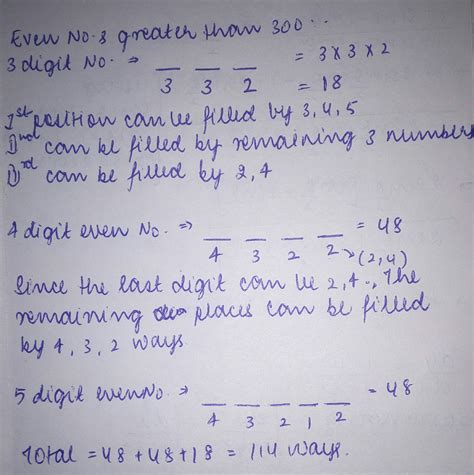 Even No.s greater than 300:-
3 digit No. ⇒ __ __ __ = 3x3x2
3 3 2 = 18
Ist position can be filled by 3,4,5
IInd can be filled by remaining 3 numbers
IIIrd can be filled by 2,4
4 digit even No. ⇒ __ __ __ __ = 48
4 3 2 2→(2,4)
Since the last digit can be 2,4 ., The
remaining places can be filled
by 4, 3, 2 ways
5 digit even No. ⇒ __ __ __ __ __ = 48
4 3 2 1 2
Total = 48 + 48 + 18 = 114 ways.